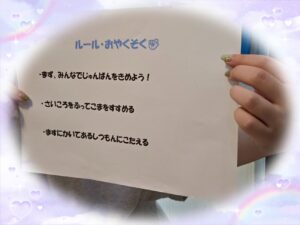 ルール・おやくそく
・まず、みんなでじゅんばんをきめよう！
・さいころをふってこまをすすめる
・ますにかいてあるしつもんにこたえる